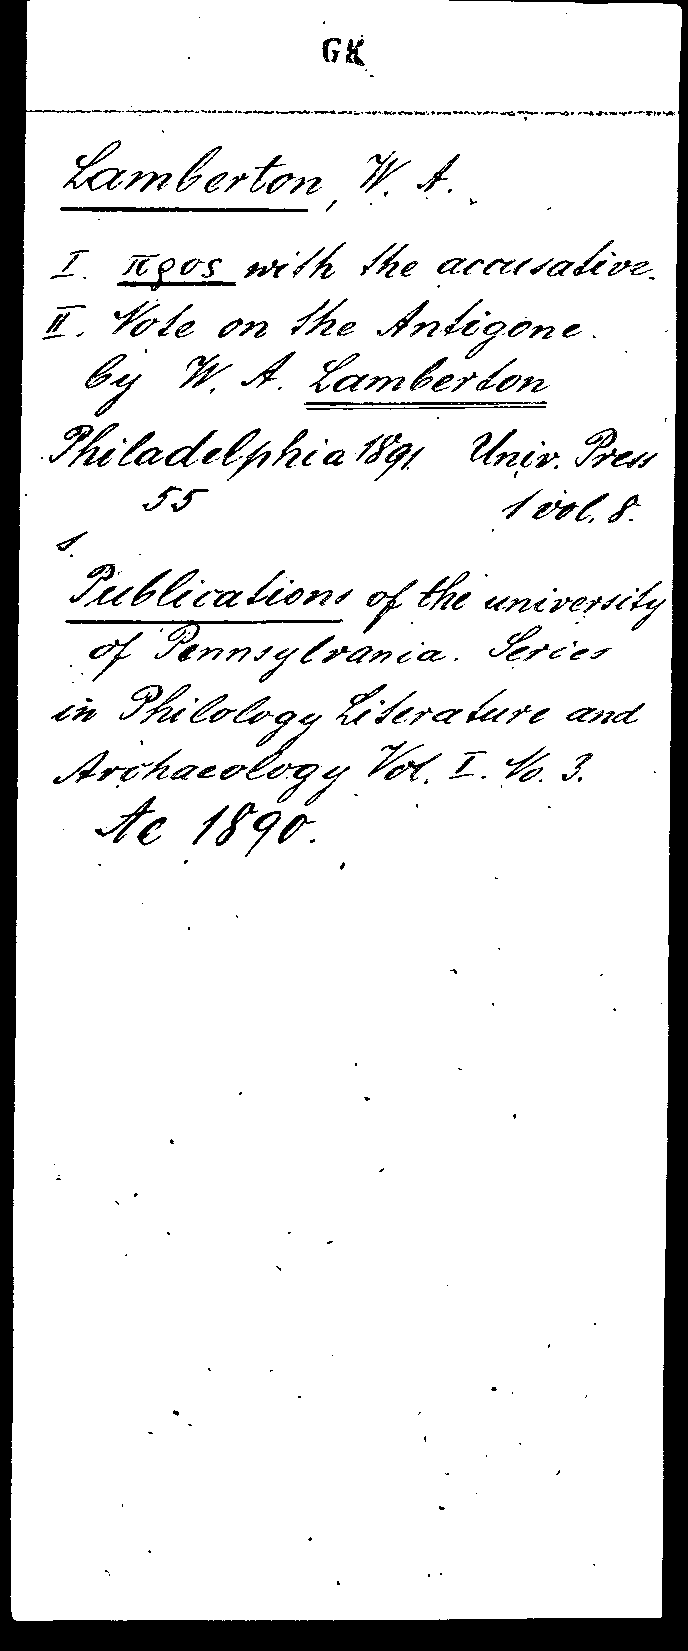 GK
Lamberton, W. A.
I. προς with the accusative.
II. Note on the Antigone.
by W. A. Lamberton
Philadelphia 1891 Univ. Press
55 1 vol. 8.
s.
Publications of the university
of Pennsylvania. Series
in Philology Literature and
Archaeology Vol. I. No. 3.
Ac 1890.